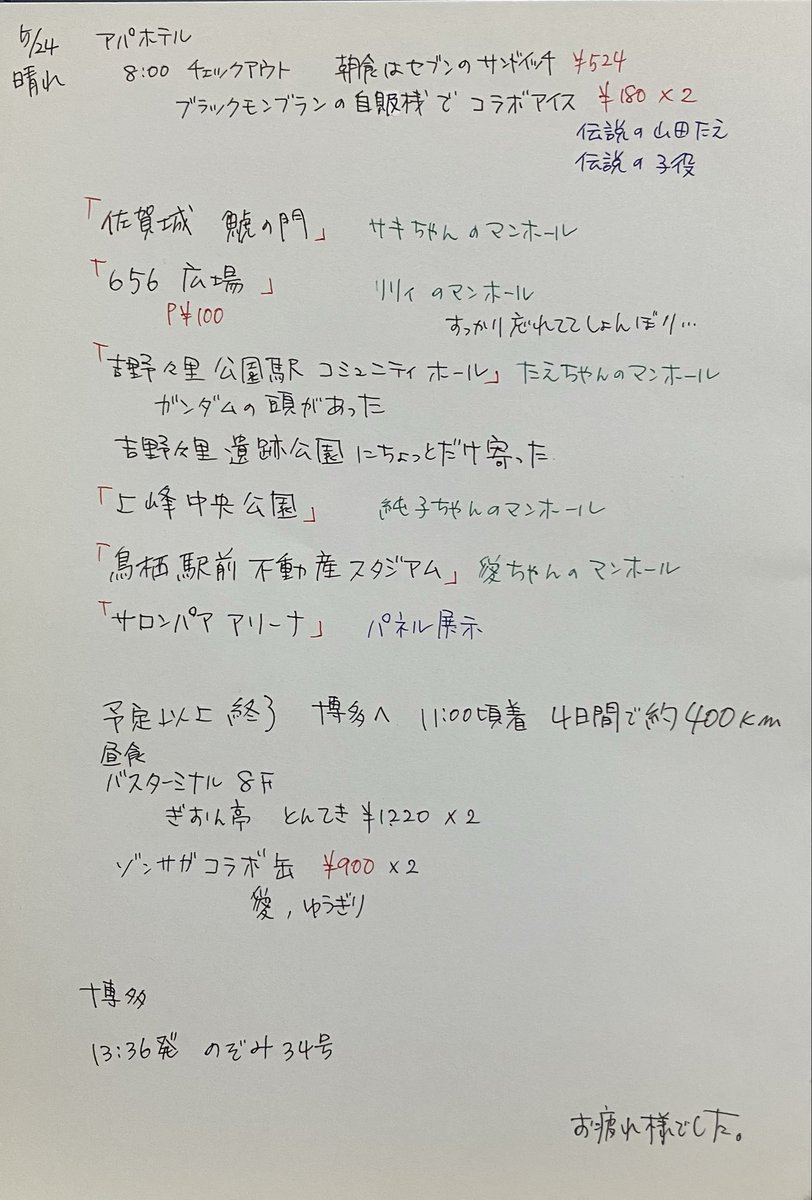 5/24 アパホテル
晴れ 8:00 チェックアウト 朝食はセブンのサンドイッチ ¥524
ブラックモンブランの自販機で コラボアイス ¥180×2
伝説の山田たえ
伝説の子役
「佐賀城 鯱の門」 サキちゃんのマンホール
「656 広場」 リリィのマンホール
P¥100 すっかり忘れててしょんぼり…
「吉野々里公園駅 コミュニティホール」たえちゃんのマンホール
ガンダムの頭があった
吉野々里遺跡公園にちょっとだけ寄った
「上峰中央公園」 純子ちゃんのマンホール
「鳥栖駅前不動産スタジアム」愛ちゃんのマンホール
「サロンパアアリーナ」 パネル展示
予定以上終了 博多へ 11:00頃着 4日間で約400km
昼食
バスターミナル 8F
ぎおん亭 とんてき ¥1220×2
ゾンサガコラボ缶 ¥900×2
愛,ゆうぎり
博多
13:36発 のぞみ34号
お疲れ様でした。